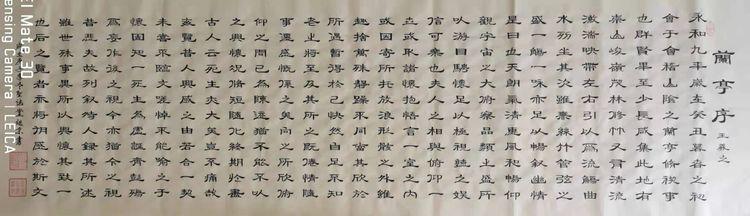 蘭亭序 王羲之
永和九年歲在癸丑暮春之初
會于會稽山陰之蘭亭修禊事
也群賢畢至少長咸集此地有
崇山峻嶺茂林修竹又有清流
激湍映帶左右引以為流觴曲
水列坐其次雖無絲竹管弦之
盛一觴一詠亦足以暢敘幽情
是日也天朗氣清惠風和暢仰
觀宇宙之大俯察品類之盛所
以游目騁懷足以極視聽之娛
信可樂也夫人之相與俯仰一
世或取諸懷抱悟言一室之內
或因寄所託放浪形骸之外雖
趣舍萬殊靜躁不同當其欣於
所遇暫得於己快然自足不知
老之將至及其所之既倦情隨
事遷感慨係之矣向之所欣俯
仰之間已為陳迹猶不能不以
之興懷況修短隨化終期於盡
古人云死生亦大矣豈不痛哉
每覽昔人興感之由若合一契
未嘗不臨文嗟悼不能喻之于
懷固知一死生為虛誕齊彭殤
為妄作後之視今亦猶今之視
昔悲夫故列敘時人錄其所述
雖世殊事異所以興懷其致一
也後之覽者亦將有感於斯文
EI Mate 30
ensing Camera | LEICA